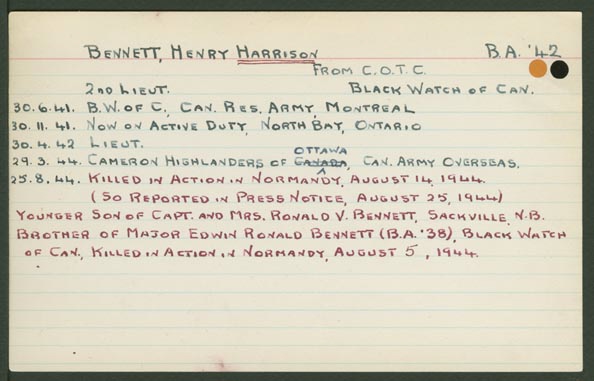 BENNETT, HENRY HARRISON B.A. '42
FROM C.O.T.C.
2ND LIEUT. BLACK WATCH OF CAN.
30.6.41. B.W. OF C., CAN. RES. ARMY, MONTREAL
30.11.41. NOW ON ACTIVE DUTY, NORTH BAY, ONTARIO
30.4.42 LIEUT.
OTTAWA
29.3.44. CAMERON HIGHLANDERS OF CANADA, CAN. ARMY OVERSEAS.
25.8.44. KILLED IN ACTION IN NORMANDY, AUGUST 14, 1944.
(SO REPORTED IN PRESS NOTICE, AUGUST 25, 1944)
YOUNGER SON OF CAPT. AND MRS. RONALD V. BENNETT, SACKVILLE, N.B.
BROTHER OF MAJOR EDWIN RONALD BENNETT (B.A. '38), BLACK WATCH
OF CAN., KILLED IN ACTION IN NORMANDY, AUGUST 5, 1944.